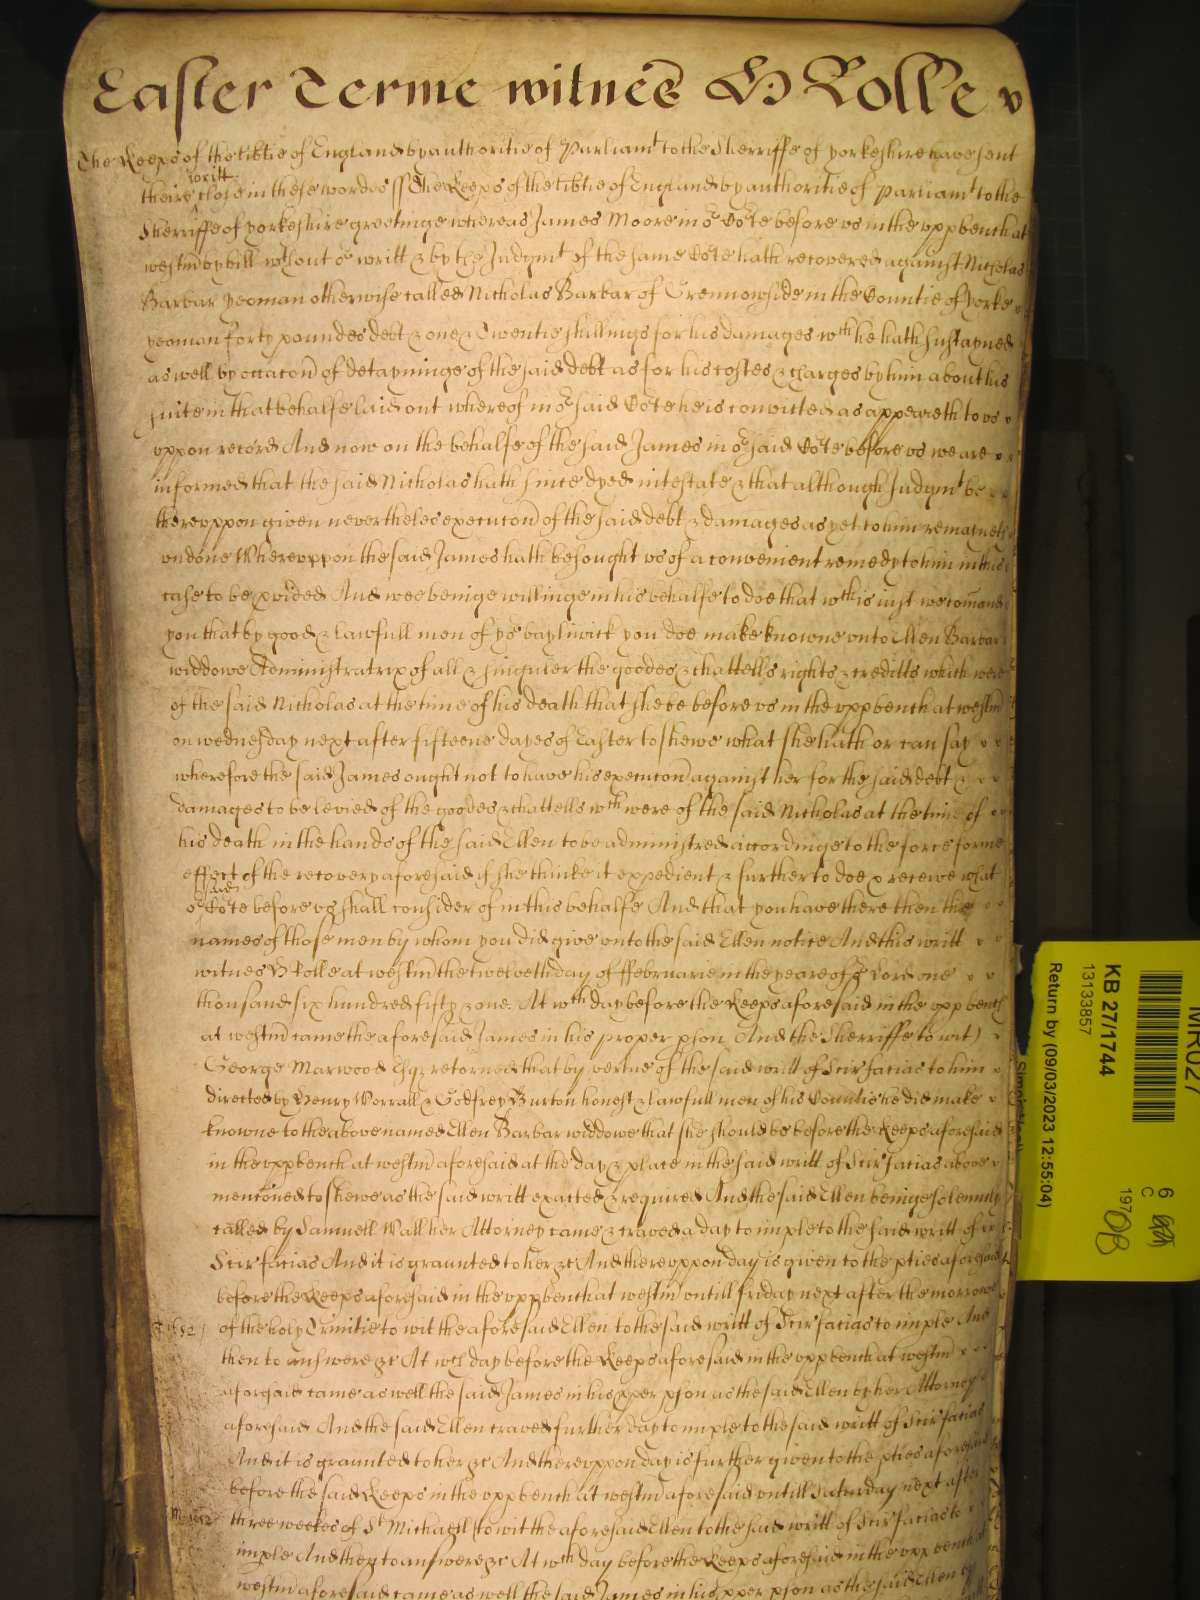 Easter Terme witnes H Rolle
The Keeps of the libtie of England by authoritie of Parliamt to the Sherriffe of Yorkeshire have sent
theire writt close in these wordes ss The Keeps of the libtie of England by authoritie of Parliamt to the
Sherriffe of Yorkeshire greetinge whereas James Moore in or Co{r}te before us in the upp bench at
westm by bill wthout or writt & by the Judgmt of the same Co{r}te hath recovered against Nicholas
Barbar yeoman otherwise called Nicholas Barbar of Grennowside in the Countie of Yorke
yeoman forty poundes debt & one & Twentie shillings for his damages wch he hath sustayned
as well by occacon of detayninge of the said debt as for his costes & charges by him about his
suite in that behalfe laid out whereof in or said Co{r}te he is convicted as appeareth to us
uppon record And now on the behalfe of the said James in or said Co{r}te before us we are
informed that the said Nicholas hath since dyed intestate & that although Judgmt be
thereuppon given nevertheles execucon of the said debt & damages as yet to him remayneth
undone Whereuppon the said James hath besought us of a convenient remedy to him in this
case to be pvided And wee beinge willinge in his behalfe to doe that wch is iust we comand
you that by good & lawfull men of yor bayliwick you doe make knowne unto Ellen Barbar
widdowe Administratrix of all & singuler the goodes & chattells rights & creditts which were
of the said Nicholas at the time of his death that she be before us in the upp bench at westm
on wednesday next after fifteene dayes of Easter to shewe what she hath or can say
wherefore the said James ought not to have his execucon against her for the said debt &
damages to be levied of the goodes & chattells wch were of the said Nicholas at the time of
his death in the hands of the said Ellen to be administred accordinge to the force forme
effect of the recovery aforesaid if she thinke it expedient & further to doe & receive what
or said Co{r}te before us shall consider of in this behalfe And that you have there then the
names of those men by whom you did give unto the said Ellen notice And this writt
witnes H Rolle at westm the twelveth day of ffebruarie in the yeare of or Lord one
thousand six hundred fifty & one. At wch day before the Keeps aforesaid in the upp bench
at westm came the aforesaid James in his proper pson And the Sherriffe to wit)
George Marwood Esqr retorned that by vertue of the said writt of Scir facias to him
directed by Henry Worrall & Godfrey Burton honest & lawfull men of his Countie he did make
knowne to the above named Ellen Barbar widdowe that she should be before the Keeps aforesaid
in the upp bench at westm aforesaid at the day & place in the said writt of Scir facias above
mencōned to shewe as the said writt exacted & required And the said Ellen beinge solemnly
called by Samuell Wall her Attorney came & craved a day to imple to the said writt of
Scir facias And it is graunted to her &c And thereuppon day is given to the pties aforesaid
before the Keeps aforesaid in the upp bench at westm untill friday next after the morrowe
of the holy Trinitie to wit the aforesaid Ellen to the said writt of Scir facias to imple And
then to answere &c At wch day before the Keeps aforesaid in the upp bench at westm
aforesaid came as well the said James in his pper pson as the said Ellen by her Attorney
aforesaid And the said Ellen craved further day to imple to the said writt of Scir facias
And it is graunted to her &c And thereuppon day is further given to the pties aforesaid
before the said Keeps in the upp bench at westm aforesaid untill Saturday next after
three weekes of St Michaell to wit the aforesaid Ellen to the said writt of Scir facias to
imple And then to answere &c At wch day before the Keeps aforesaid in the upp bench at
westm aforesaid came as well the said James in his pper pson as the said Ellen by
MR027
KB 27/1744
13133857
Return by (09/03/2023 12:55:04)
6
C
197